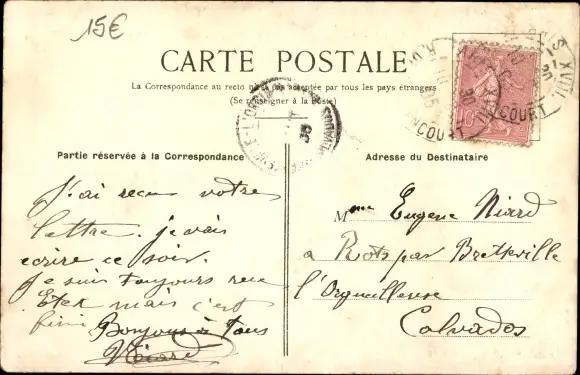 15€
CARTE POSTALE
La Correspondance au recto n'est pas acceptée par tous les pays étrangers
(Se renseigner à la Poste)
Partie réservée à la Correspondance
J'ai reçu votre
lettre. je vais
ecrire ce soir.
je suis toujours
mais c'est
fini Bonjour à Tous
Niard
Adresse du Destinataire
Mme Eugene Niard
a Rots par Bretteville
l'Orgueilleuse
Calvados
10